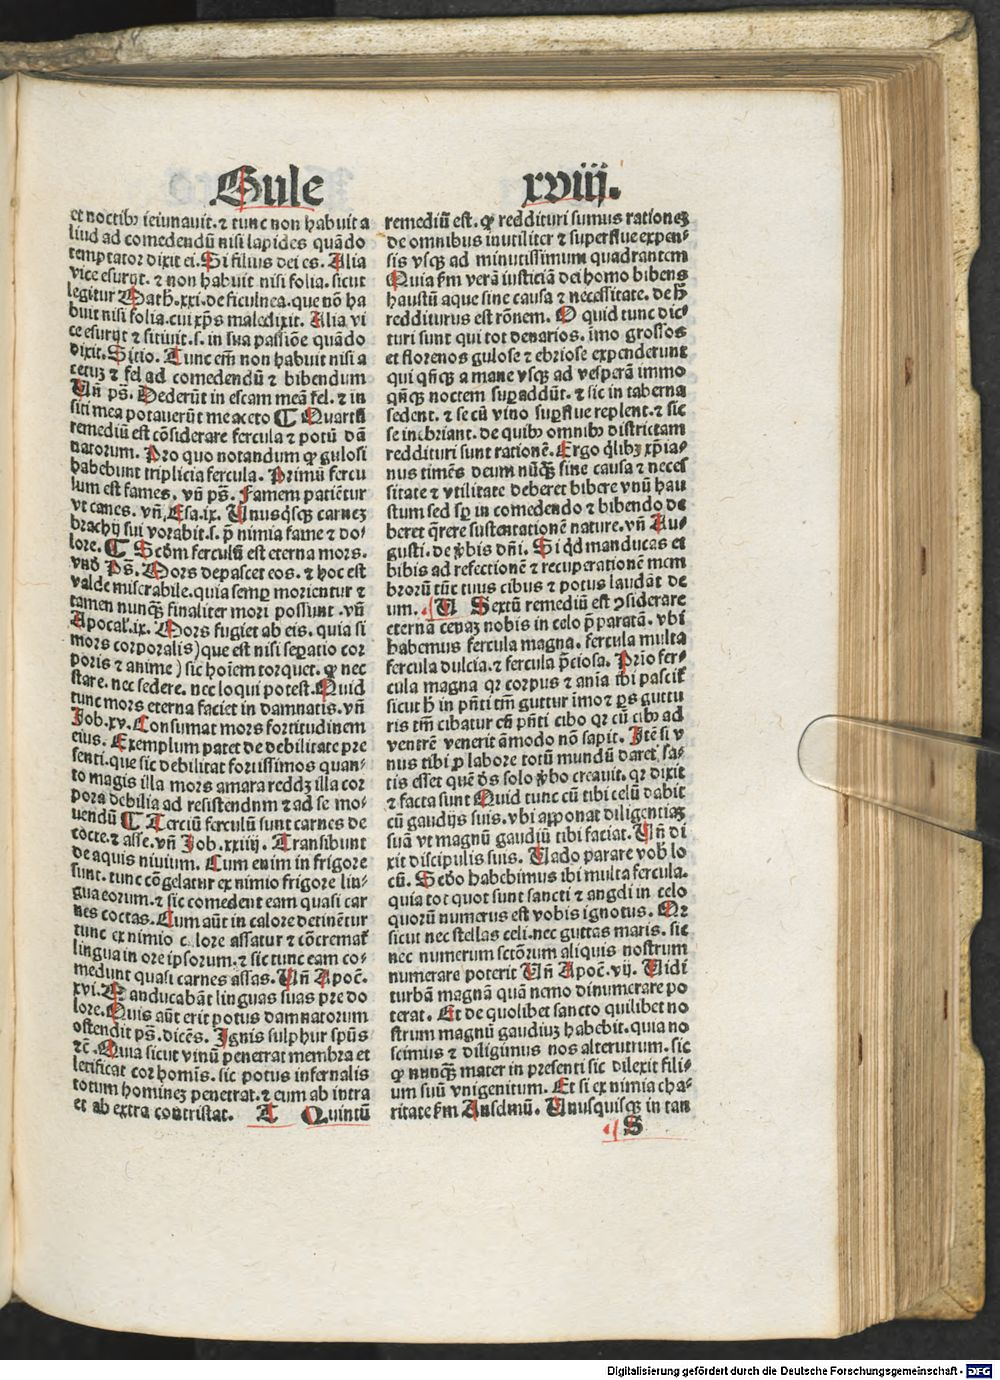 Gule
xviij.
et noctibꝫ ieiunauit. ⁊ tunc non habuit a
liud ad comedendū nisi lapides quādo
temptator dixit ei. Si filius dei es. Alia
vice esurijt. ⁊ non habuit nisi folia. sicut
legitur Math̄. xxi. de ficulnea. que nō ha
buit nisi folia. cui xp̄s maledixit. Alia vi
ce esurijt ⁊ sitiuit. s. in sua passiōe quādo
dixit. Sitio. Tunc em̄ non habuit nisi a
cetuꝫ ⁊ fel ad comedendū ⁊ bibendum
Vn̄ ps̄. Dederūt in escam meā fel. ⁊ in
siti mea potauerūt me aceto ¶ Quartū
remediū est cōsiderare fercula ⁊ potū dā
natorum. Pro quo notandum ꝙ gulosi
habebunt triplicia fercula. Primū fercu
lum est fames. vn̄ ps̄. Famem patiētur
vt canes. vn̄ Esa. ix. Unusq̇sqꝫ carneꝫ
brachij sui vorabit. s. p̄ nimia fame ⁊ do⸗
lore. ¶ Scd̄m ferculū est eterna mors.
vnd̄ Ps̄. Mors depascet eos. ⁊ hoc est
valde miserabile. quia semꝑ morientur ⁊
tamen nunqꝫ finaliter mori possunt. vn̄
Apocal̄. ix. Mors fugiet ab eis. quia si
mors corporalis) que est nisi seꝑatio cor
poris ⁊ anime) sic hoīem torquet. ꝙ nec
stare. nec sedere. nec loqui potest. Quid
tunc mors eterna faciet in damnatis. vn̄
Job. xv. Consumat mors fortitudinem
eius. Exemplum patet de debilitate pre
senti. que sic debilitat fortissimos quan⸗
to magis illa mors amara reddꝫ illa cor
pora debilia ad resistendnm ⁊ ad se mo⸗
uendū ¶ Terciū ferculū sunt carnes de
cocte. ⁊ asse. vn̄ Job. xxiiij. Transibunt
de aquis niuium. Cum enim in frigore
sunt. tunc cōgelatur ex nimio frigore lin⸗
gua eorum. ⁊ sic comedent eam quasi car
nes coctas. Cum aūt in calore detinētur
tunc ex nimio c lore assatur ⁊ cōcremat᷑
lingua in ore ipsorum. ⁊ sic tunc eam co⸗
medunt quasi carnes assas. Vn̄ Apoc̄.
xvi. Manducabāt linguas suas pre do
lore. Quis aūt erit potus damnatorum
ostendit ps̄. dicēs. Ignis sulphur spūs
⁊c̄. Quia sicut vinū penetrat membra et
letificat cor homīs. sic potus infernalis
totum homineꝫ penetrat. ⁊ eum ab intra
et ab extra contristat. ¶ Quintū
remediū est. ꝙ reddituri sumus rationeꝫ
de omnibus inutiliter ⁊ superflue expen⸗
sis vsqꝫ ad minutissimum quadrantem
Quia ẜm verā iusticiā dei homo bibens
haustū aque sine causa ⁊ necessitate. de h̄
redditurus est rōnem. O quid tunc dic⸗
turi sunt qui tot denarios. imo grossos
et florenos gulose ⁊ ebriose expenderunt
qui qn̄qꝫ a mane vsqꝫ ad vesperā immo
qn̄qꝫ noctem suꝑaddūt. ⁊ sic in taberna
sedent. ⁊ se cū vino suꝑflue replent. ⁊ sic
se inebriant. de quibꝫ omnibꝫ districtam
reddituri sunt rationē. Ergo q̇libꝫ xp̄ia⸗
nus timēs deum nūqꝫ sine causa ⁊ neces
sitate ⁊ vtilitate deberet bibere vnū hau
stum sed sꝑ in comedendo ⁊ bibendo de
beret q̄rere sustentationē nature. vn̄ Au⸗
gusti. de v̄bis dn̄i. Si qd̄ manducas et
bibis ad refectionē ⁊ recuperationē mem
brorū tūc tuus cibus ⁊ potus laudāt de
um. ¶ Sextū remediū est ꝯsiderare
eternā cenaꝫ nobis in celo p̄paratā. vbi
habemus fercula magna. fercula multa
fercula dulcia. ⁊ fercula p̄ciosa. Prīo fer⸗
cula magna qr corpus ⁊ aīa ibi pascit᷑
sicut h̄ in pn̄ti tm̄ guttur īmo ⁊ ꝑs guttu
ris tm̄ cibatur cū pn̄ti cibo qr cū cibꝫ ad
ventrē venerit āmodo nō sapit. Itē si v
nus tibi ꝓ labore totū mundū daret sa⸗
tis esset quē d̄s solo v̄bo creauit. qr dixit
⁊ facta sunt Quid tunc cū tibi celū dabit
cū gaudijs suis. vbi apponat diligentiaꝫ
suā vt magnū gaudiū tibi faciat. Vn̄ di
xit discipulis suis. Vado parare vob̄ lo
cū. Sed̄o habebimus ibi multa fercula.
quia tot quot sunt sancti ⁊ angeli in celo
quorū numerus est vobis ignotus. Qr
sicut nec stellas celi. nec guttas maris. sic
nec numerum sctōrum aliquis nostrum
numerare poterit Vn̄ Apoc̄. vij. Vidi
turbā magnā quā nemo dinumerare po
terat. Et de quolibet sancto quilibet no
strum magnū gaudiuꝫ habebit. quia no
scimus ⁊ diligimus nos alterutrum. sic
ꝙ nunqꝫ mater in presenti sic dilexit fili⸗
um suū vnigenitum. Et si ex nimia cha⸗
ritate ẜm Anselmū. Unusquisqꝫ in tan
S
Digitalisierung gefördert durch die Deutsche Forschungsgemeinschaft - DFG